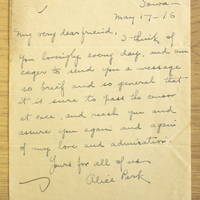 Iowa
May 17-16
My very dear friend, I think of
you lovingly every day, and am
eager to send you a message
so breif and so general that
it is sure to pass the censor
at once, and reach you and
assure you again and again
of my love and admiration.
Yours for all of us
Alice Park